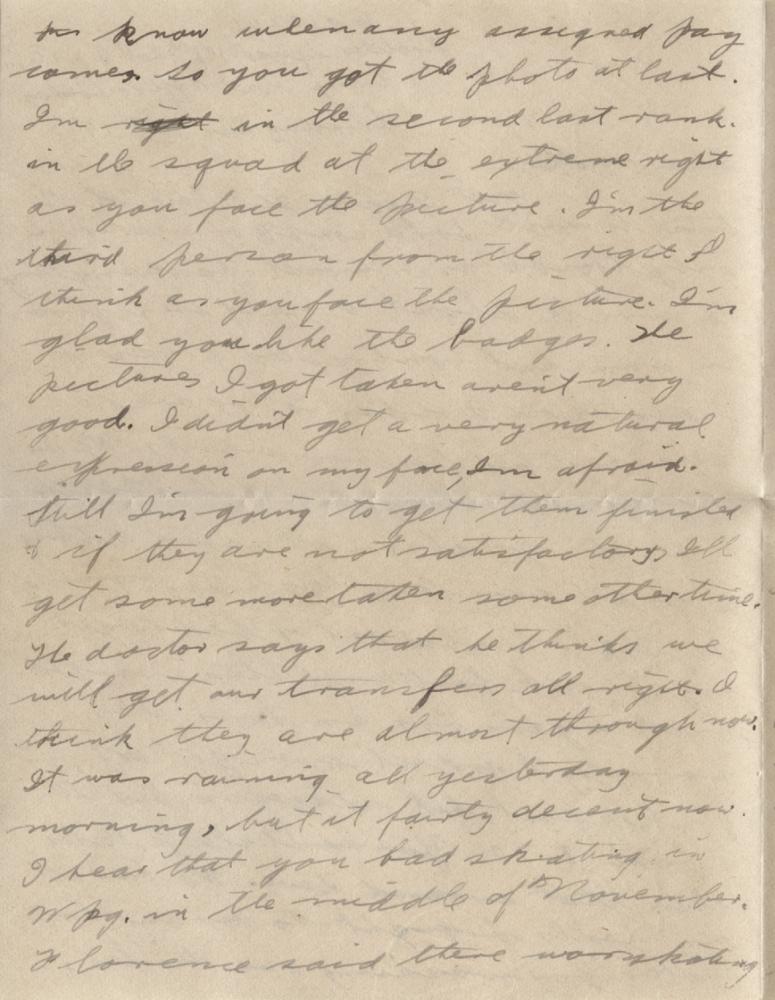 me know when any assigned pay
comes. So you got the photo at last.
I'm right in the second last rank.
in the squad at the extreme right
as you face the picture. I'm the
third person from the right I
think as you face the picture. I'm
glad you like the badges. The
pictures I got taken aren't very
good. I didn't get a very natural
expression on my face, I'm afraid.
Still I'm going to get them finished
& if they are not satisfactory, I'll
get some more taken some other time.
The doctor says that he thinks we
will get our transfers all right. I
think they are almost through now.
It was raining all yesterday
morning, but it fairly decent now.
I hear that you had skating in
Wpg. in the middle of November.
Florence said there was skating